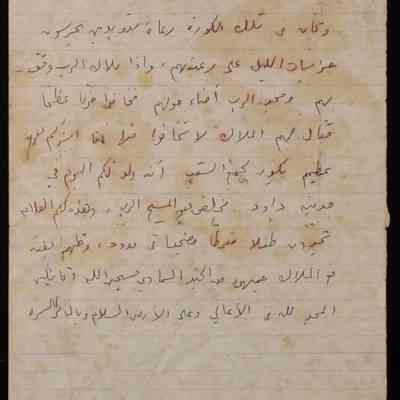 وكان في تلك الكورة رعاة متبدين يحرسون
حراسات الليل على رعيتهم، واذا ملاك الرب وقف
بهم ومجد الرب أضاء حولهم فخافوا خوفا عظيما
فقال لهم الملاك لا تخافوا فها انا ابشركم بفرح
عظيم يكون لجميع الشعب أنه ولد لكم اليوم في
مدينة داود مخلص هو المسيح الرب، وهذه لكم العلامة
تجدون طفلا مقمطا مضجعا في مذود، وظهر بغتة
مع الملاك جمهور من الجند السماوي مسبحين الله وقائلين
المجد لله في الأعالي وعلى الأرض السلام وبالناس المسرة